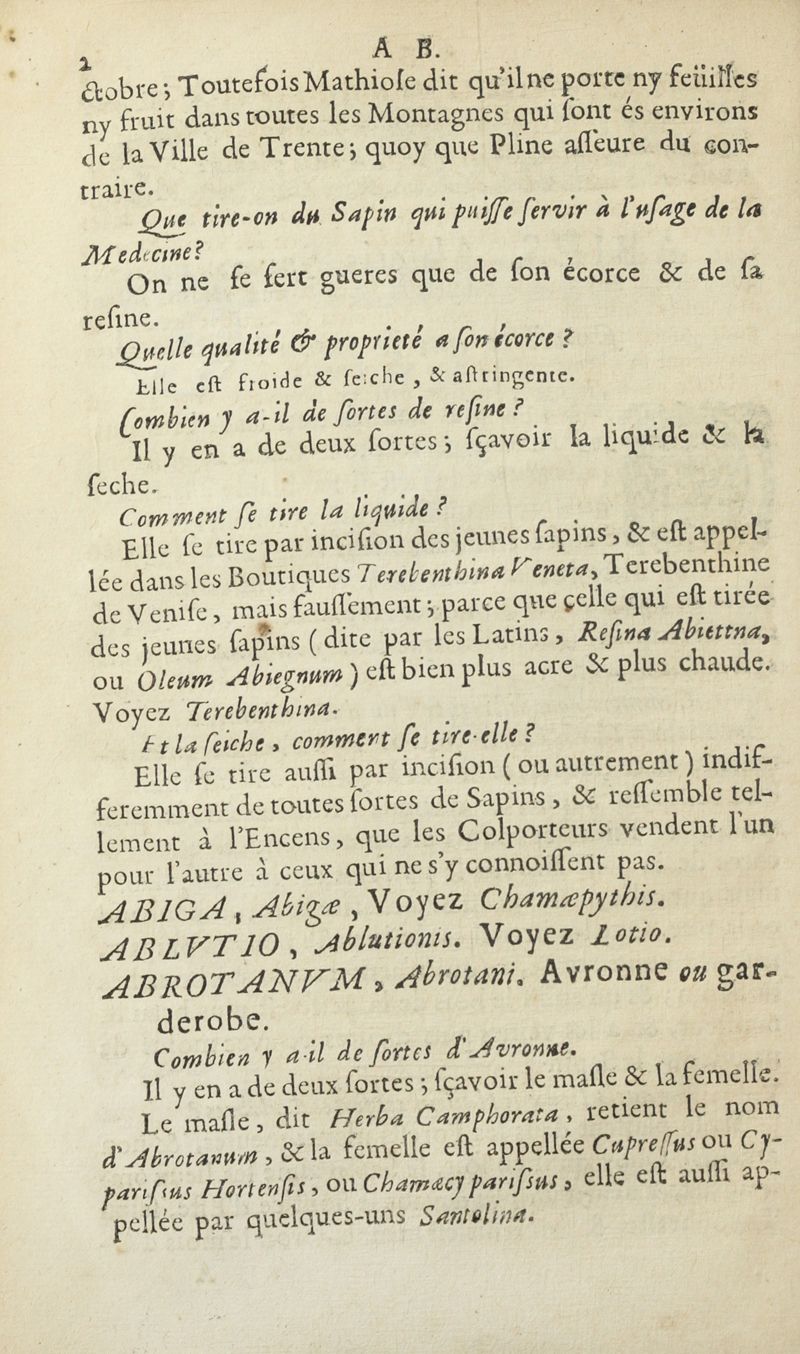 2 A B.
ctobre; Toutefois Mathiole dit qu'il ne porte ny feüilles
ny fruit dans toutes les Montagnes qui ſont és environs
de la Ville de Trente; quoy que Pline aſſeure du con-
traire.
Que tire-on du Sapin qui puiſſe ſervir à l'uſage de la
Medecine?
On ne ſe ſert gueres que de ſon écorce & de ſa
reſine.
Quelle qualité & proprieté a ſon écorce ?
Elle eſt froide & ſeiche , & aſtringente.
Combien y a-il de ſortes de reſine ?
Il y en a de deux ſortes; ſçavoir la liquide & la
ſeche.
Comment ſe tire la liquide ?
Elle ſe tire par inciſion des jeunes ſapins, & eſt appel-
lée dans les Boutiques Terebenthina Veneta, Terebenthine
de Veniſe, mais fauſſement; parce que çelle qui eſt tirée
des jeunes ſapins ( dite par les Latins, Reſina Abiettna,
ou Oleum Abiegnum ) eſt bien plus acre & plus chaude.
Voyez Terebenthina.
Et la ſeiche, comment ſe tire-elle ?
Elle ſe tire auſſi par inciſion ( ou autrement ) indif-
feremment de toutes ſortes de Sapins, & reſſemble tel-
lement à l'Encens, que les Colporteurs vendent l'un
pour l'autre à ceux qui ne s'y connoiſſent pas.
ABIGA, Abigæ, Voyez Chamæpythis.
ABLVTIO, Ablutionis. Voyez Lotio.
ABROTANVM, Abrotani. Avronne ou gar-
derobe.
Combien y a-il de ſortes d'Avronne.
Il y en a de deux ſortes; ſçavoir le maſle & la femelle.
Le maſle, dit Herba Camphorata, retient le nom
d'Abrotanum, & la femelle eſt appellée Cupreſſus ou Cy-
pariſsus Hortenſis, ou Chamæcypariſsus, elle eſt auſſi ap-
pellée par quelques-uns Santolina.